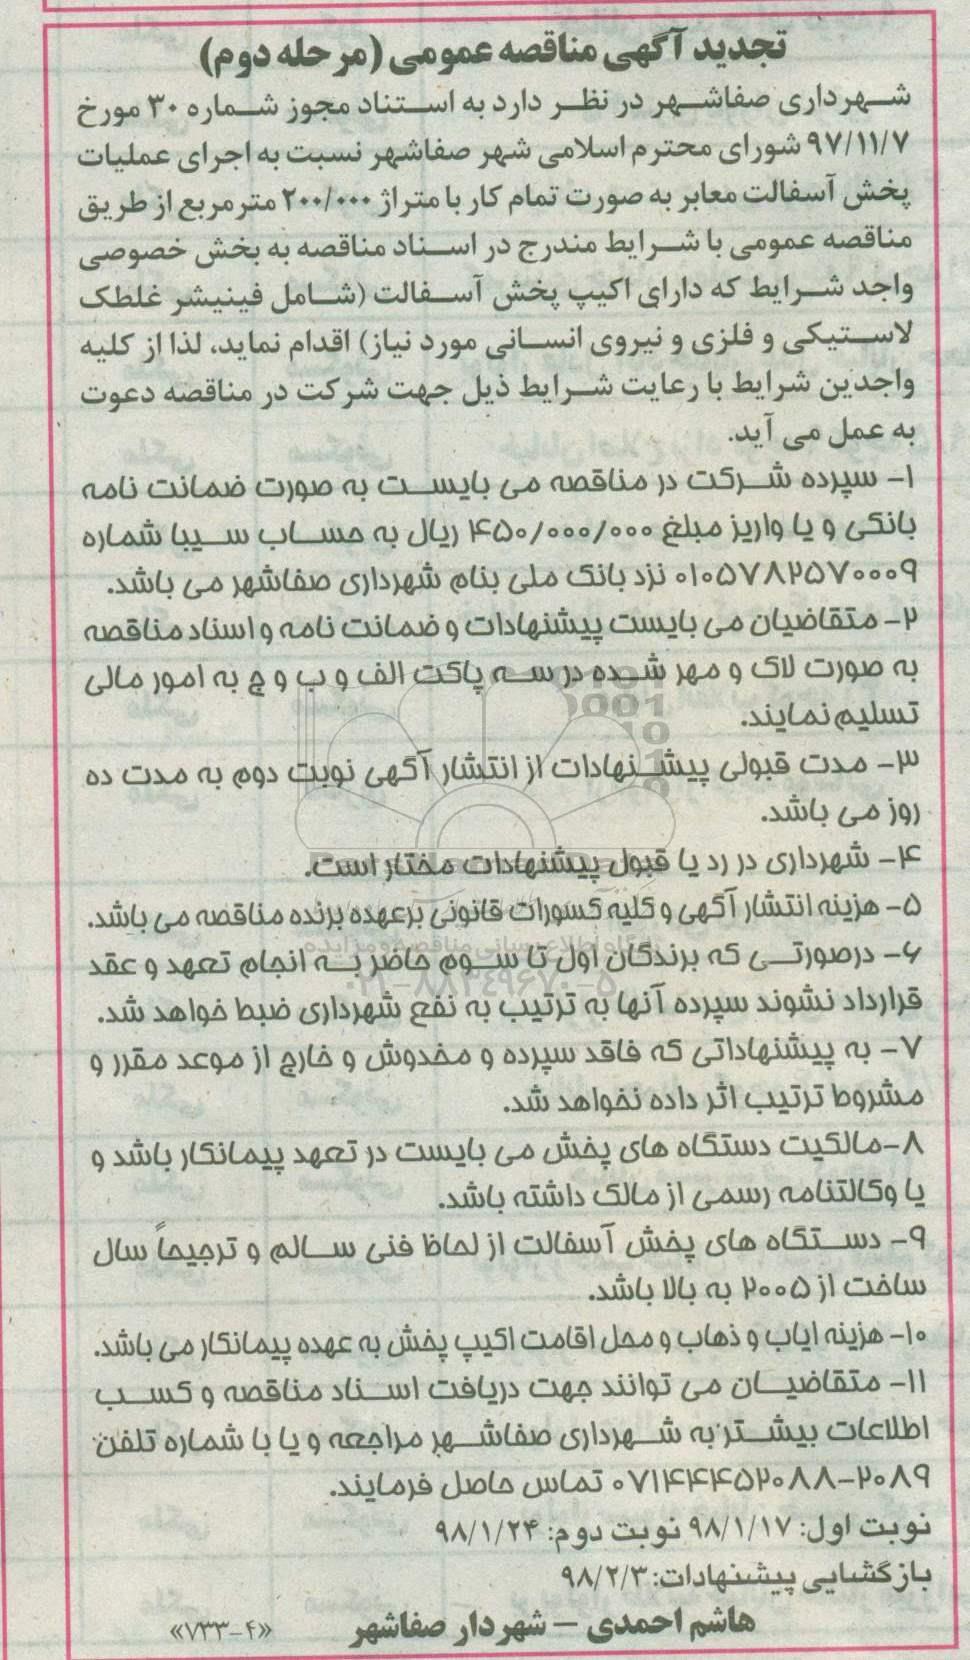 تجدید آگهی مناقصه عمومی (مرحله دوم)
شهرداری صفاشهر در نظر دارد به استناد مجوز شماره ۳۰ مورخ
۹۷/۱۱/۷ شورای محترم اسلامی شهر صفاشهر نسبت به اجرای عملیات
پخش آسفالت معابر به صورت تمام کار با متراژ ۲۰۰/۰۰۰ مترمربع از طریق
مناقصه عمومی با شرایط مندرج در اسناد مناقصه به بخش خصوصی
واجد شرایط که دارای اکیپ پخش آسفالت (شامل فینیشر غلطک
لاستیکی و فلزی و نیروی انسانی مورد نیاز) اقدام نماید، لذا از کلیه
واجدین شرایط با رعایت شرایط ذیل جهت شرکت در مناقصه دعوت
به عمل می آید.
۱- سپرده شرکت در مناقصه می بایست به صورت ضمانت نامه
بانکی و یا واریز مبلغ ۴۵۰/۰۰۰/۰۰۰ ریال به حساب سیبا شماره
۰۱۰۵۷۸۲۵۷۰۰۰۹ نزد بانک ملی بنام شهرداری صفاشهر می باشد.
۲- متقاضیان می بایست پیشنهادات و ضمانت نامه و اسناد مناقصه
به صورت لاک و مهر شده در سه پاکت الف و ب و ج به امور مالی
تسلیم نمایند.
۳- مدت قبولی پیشنهادات از انتشار آگهی نوبت دوم به مدت ده
روز می باشد.
۴- شهرداری در رد یا قبول پیشنهادات مختار است.
۵- هزینه انتشار آگهی و کلیه کسورات قانونی برعهده برنده مناقصه می باشد.
پایگاه اطلاع رسانی مناقصه و مزایده
۶- درصورتی که برندگان اول تا سوم حاضر به انجام تعهد و عقد
۰۲۱-۸۸۳۴۹۶۷۰-۵
قرارداد نشوند سپرده آنها به ترتیب به نفع شهرداری ضبط خواهد شد.
۷- به پیشنهاداتی که فاقد سپرده و مخدوش و خارج از موعد مقرر و
مشروط ترتیب اثر داده نخواهد شد.
۸-مالکیت دستگاه های پخش می بایست در تعهد پیمانکار باشد و
یا وکالتنامه رسمی از مالک داشته باشد.
۹- دستگاه های پخش آسفالت از لحاظ فنی سالم و ترجیحاً سال
ساخت از ۲۰۰۵ به بالا باشد.
۱۰- هزینه ایاب و ذهاب و محل اقامت اکیپ پخش به عهده پیمانکار می باشد.
۱۱- متقاضیان می توانند جهت دریافت اسناد مناقصه و کسب
اطلاعات بیشتر به شهرداری صفاشهر مراجعه و یا با شماره تلفن
۰۷۱۴۴۴۵۲۰۸۸-۲۰۸۹ تماس حاصل فرمایند.
نوبت اول: ۹۸/۱/۱۷ نوبت دوم: ۹۸/۱/۲۴
بازگشایی پیشنهادات: ۹۸/۲/۳
هاشم احمدی – شهردار صفاشهر
«۷۳۳-۴»